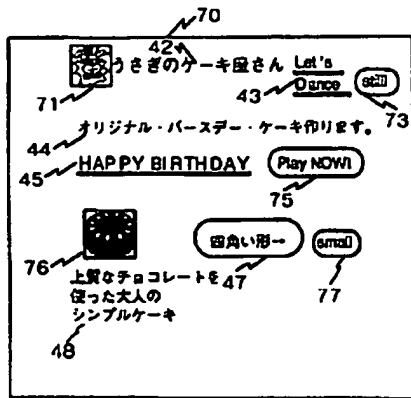 70
42
うさぎのケーキ屋さん Let's
71 43 Dance still
73
44 オリジナル・バースデー・ケーキ作ります。
45 HAPPY BIRTHDAY Play NOW!
75
76 四角い形→ small
47 77
上質なチョコレートを
使った大人の
シンプルケーキ
48